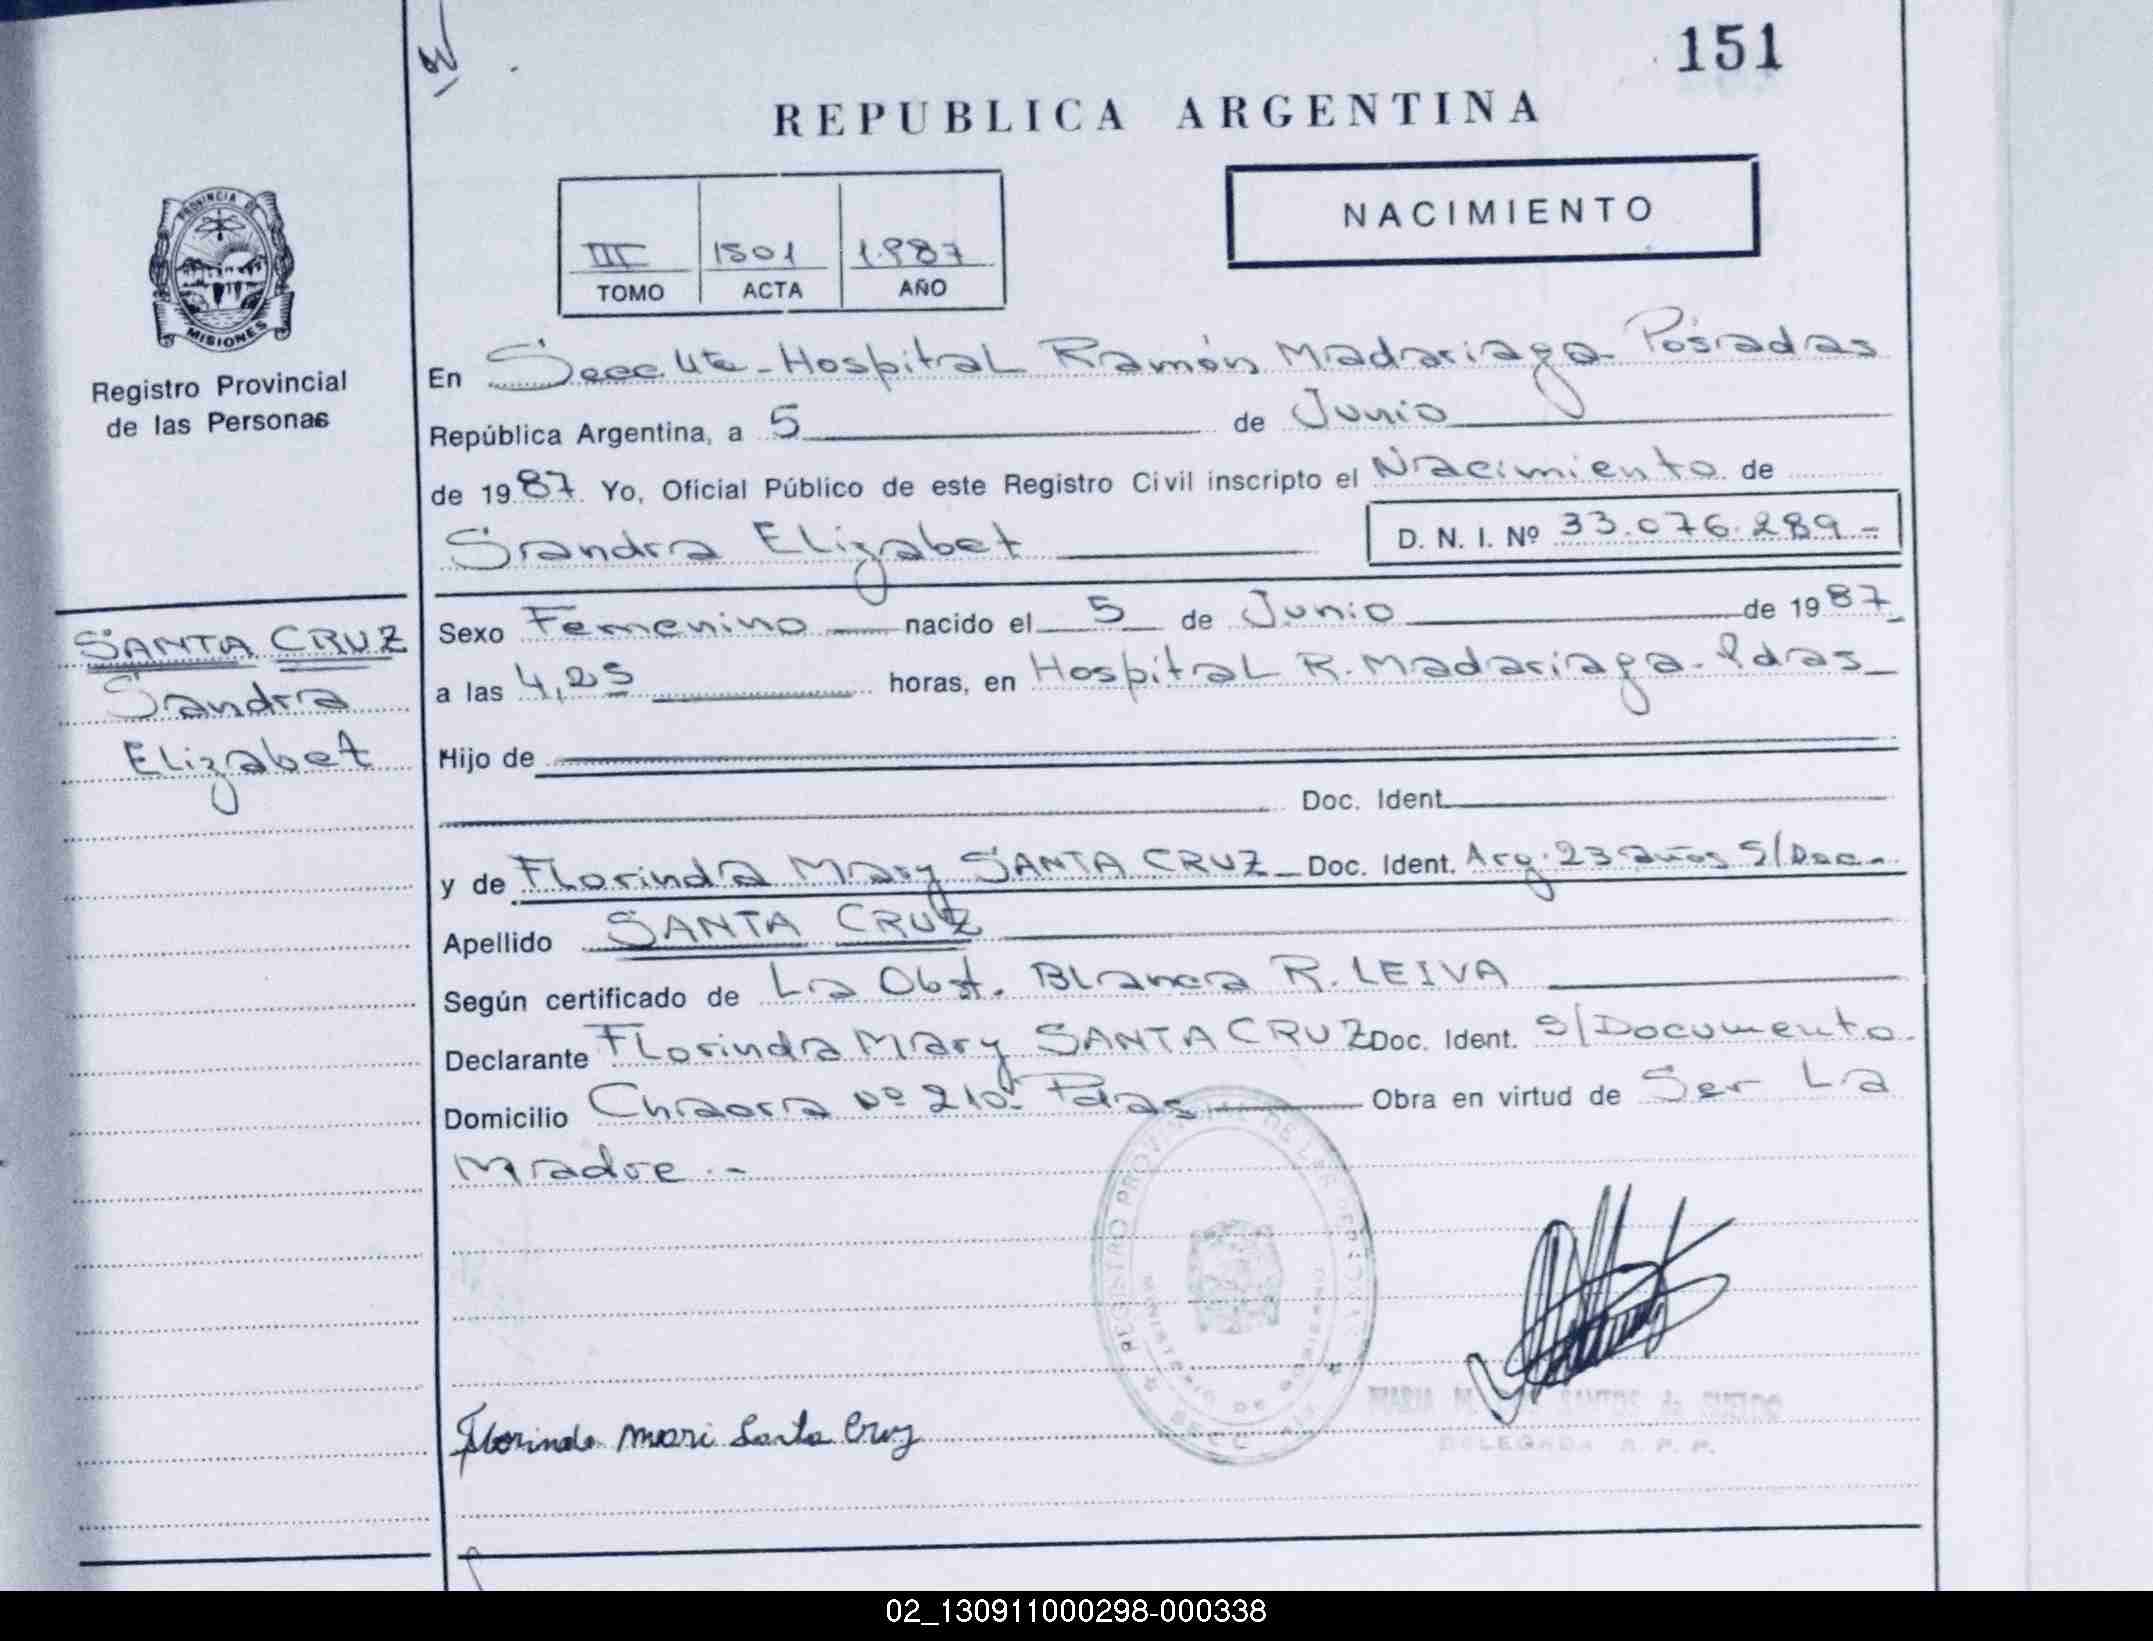 151
REPUBLICA ARGENTINA
NACIMIENTO
III 1501 1.987
TOMO ACTA AÑO
PROVINCIA DE
MISIONES
Registro Provincial
de las Personas
SANTA CRUZ
Sandra
Elizabet
En Secc 4ta - Hospital Ramón Madariaga - Posadas
República Argentina, a 5 de Junio
de 1987 Yo, Oficial Público de este Registro Civil inscripto el Nacimiento de
Sandra Elizabet D. N. I. Nº 33.076.289.-
Sexo Femenino nacido el 5 de Junio de 1987
a las 4,25 horas, en Hospital R. Madariaga - Pdas
Hijo de
Doc. Ident.
y de Florinda Mary SANTA CRUZ - Doc. Ident. Arg. 23 años S/Doc.-
Apellido SANTA CRUZ
Según certificado de La Obst. Blanca R. LEIVA
Declarante Florinda Mary SANTA CRUZ Doc. Ident. S/Documento.
Domicilio Nº 210 - Pdas Obra en virtud de Ser La
Madre.-
REGISTRO PROVINCIAL DE LAS PERSONAS
MINISTERIO DE GOBIERNO
SECC.
Florinda Mari Santa Cruz
MARIA SANTOS de SUELDO
DELEGADA R. P. P.
02_130911000298-000338